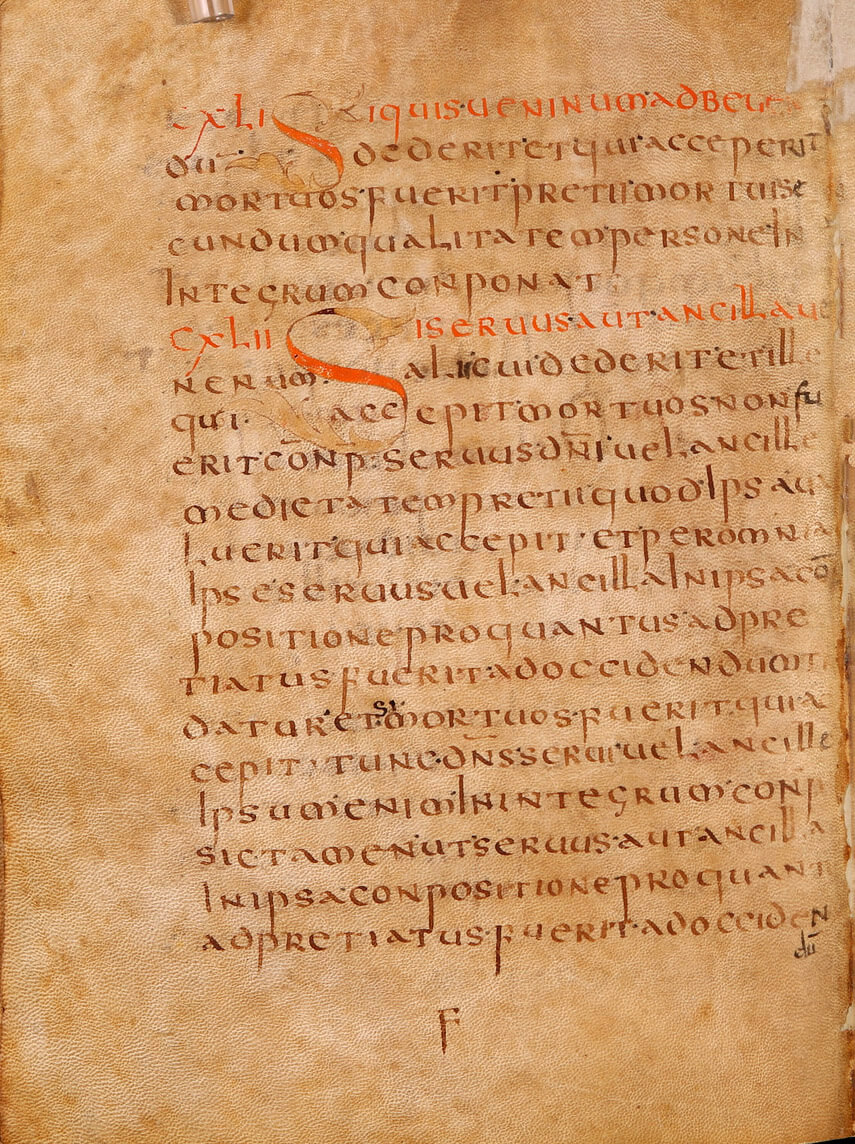 CXLI SIQUIS·UENINUM·ADBEUEN
DŪ DEDERIT·ETQUI·ACCEPERIT
MORTUOS·FUERIT·PRETIUMORTUISE
CUNDUMQUALITATEMPERSONEIN
INTEGRUMCONPONAT
CXLII SISERUUSAUTANCILLAUE
NENUM·ALICUIDEDERITETILLE
QUI·ACCEPITMORTUOSNONFU
ERITCŌNP·SERUUSDN̄IUELANCILLE
MEDIETATEMPRETIIQUODIPSAU
LUERITQUIACCEPIT·ETPEROMNIA
IPSESERUUSUELANCILLAINIPSACŌ
POSITIONEPROQUANTUSADPRE
TIATUSFUERITADOCCIDENDUMT
DATUR·ETSIMORTUOSFUERITQUIA
CEPIT·TUNCDN̄SSERUIUELANCILLE
IPSUMENIMININTEGRUMCONP
SICTAMENUTSERUUSAUTANCILLA
INIPSACONPOSITIONEPROQUANT
ADPRETIATUS·FUERIT·ADOCCIDEN
dū
F